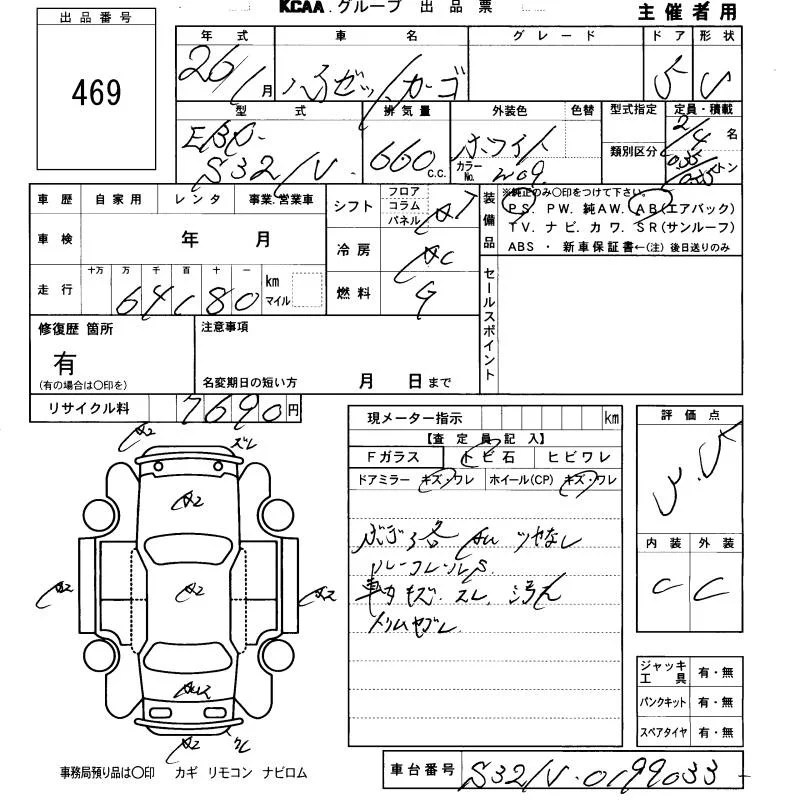 KCAA.グループ 出品票
主催者用
出品番号
469
年式 車名 グレード ドア 形状
26/1月 ハイゼットカーゴ 5 V
型式 排気量 外装色 色替 型式指定 定員・積載
類別区分
EBD-
S321V 660 c.c. ホワイト カラーNo. W09 2/4名
トン
車歴 自家用 レンタ 事業.営業車
車検 年 月
走行 十万 万 千 百 十 一 km マイル
64180
シフト フロア コラム パネル AT
冷房 AC
燃料 G
装備品
※純正のみ〇印をつけて下さい。
PS. PW. 純AW. AB(エアバック)
TV. ナビ. カワ. SR(サンルーフ)
ABS ・ 新車保証書←(注) 後日送りのみ
セールスポイント
修復歴 箇所
有
(有の場合は〇印を)
注意事項
名変期日の短い方 月 日まで
リサイクル料 7690円
現メーター指示 km
【査定員記入】
Fガラス トビ石 ヒビワレ
ドアミラー キズ・ワレ ホイール(CP) キズ・ワレ
ツヤなし
車内キズ. スレ. 汚れ
トリムヤブレ
A2
ズレ
A2
A2
A2
A2
A2
評価点
3.5
内装 外装
C C
ジャッキ工具 有・無
パンクキット 有・無
スペアタイヤ 有・無
事務局預り品は〇印 カギ リモコン ナビロム
車台番号 S321V-0199033